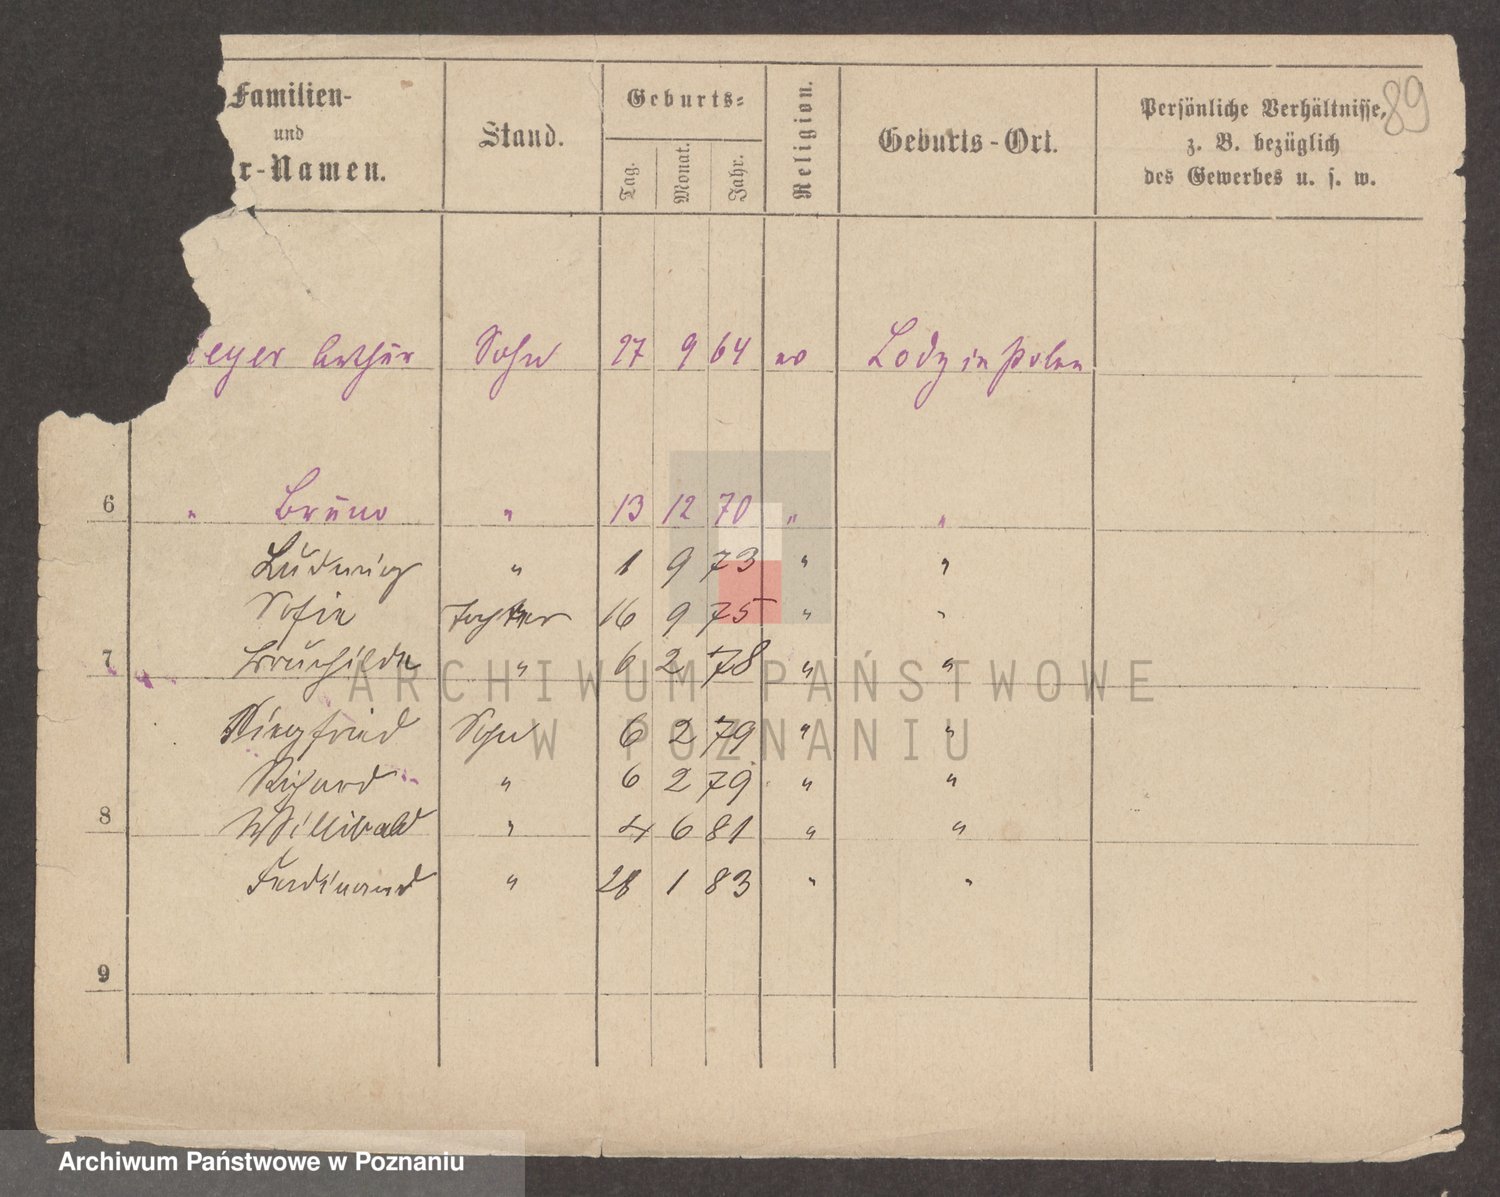 89
Familien-
und
r-Namen.
Stand.
Geburts-
Tag.
Monat.
Jahr.
Religion.
Geburts-Ort.
Persönliche Verhältnisse,
z. B. bezüglich
des Gewerbes u. s. w.
eyer Arthur Sohn 27 9 64 ev Lodz in Polen
6 " Bruno " 13 12 70 " "
Ludwig " 1 9 73 " "
Sofie Tochter 16 9 75 " "
7 " 6 2 78 " "
Siegfried Sohn 6 2 79 " "
Richard " 6 2 79 " "
8 Willibald " 4 6 81 " "
Ferdinand " 28 1 83 " "
9
ARCHIWUM PAŃSTWOWE
W POZNANIU
Archiwum Państwowe w Poznaniu